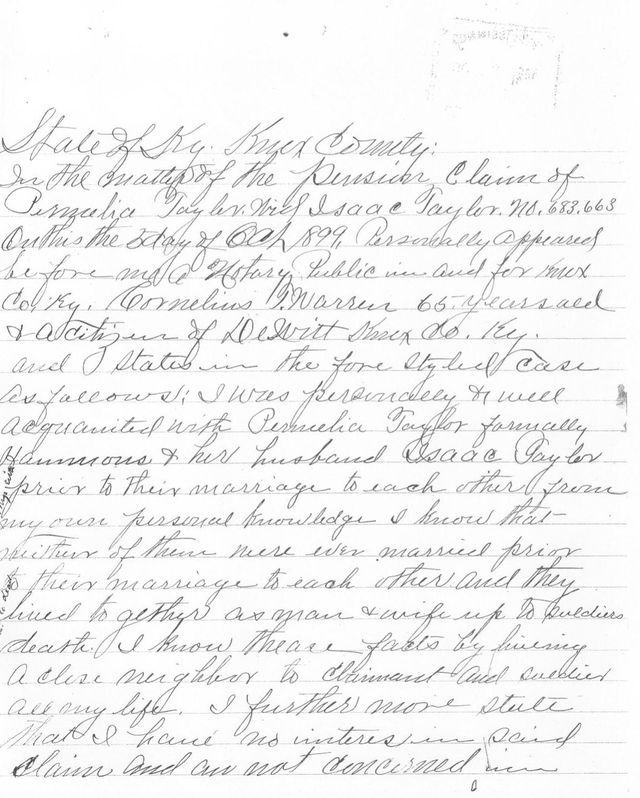 State of Ky. Knox County:
In the matter of the Pension Claim of
Permelia Taylor. Wid Isaac Taylor. No. 683.663
On this the 5 day of Oct 1899, Personally appeared
before me a Notary Public in and for Knox
Co. Ky. Cornelius T. Warren 65 years old
& a citizen of DeWitt Knox Co. Ky.
and states in the fore styled case
as follows; I was personally & well
acquanited with Permelia Taylor formally
Hammons & her husband Isaac Taylor
prior to their marriage to each other from
my own personal knowledge I know that
neither of them were ever married prior
to their marriage to each other and they
lived to gether as man & wife up to soldiers
death. I know thease facts by living
a close neighbor to claimant and soldier
all my life. I further more state
that I have no interes in said
claim and am not concerned in